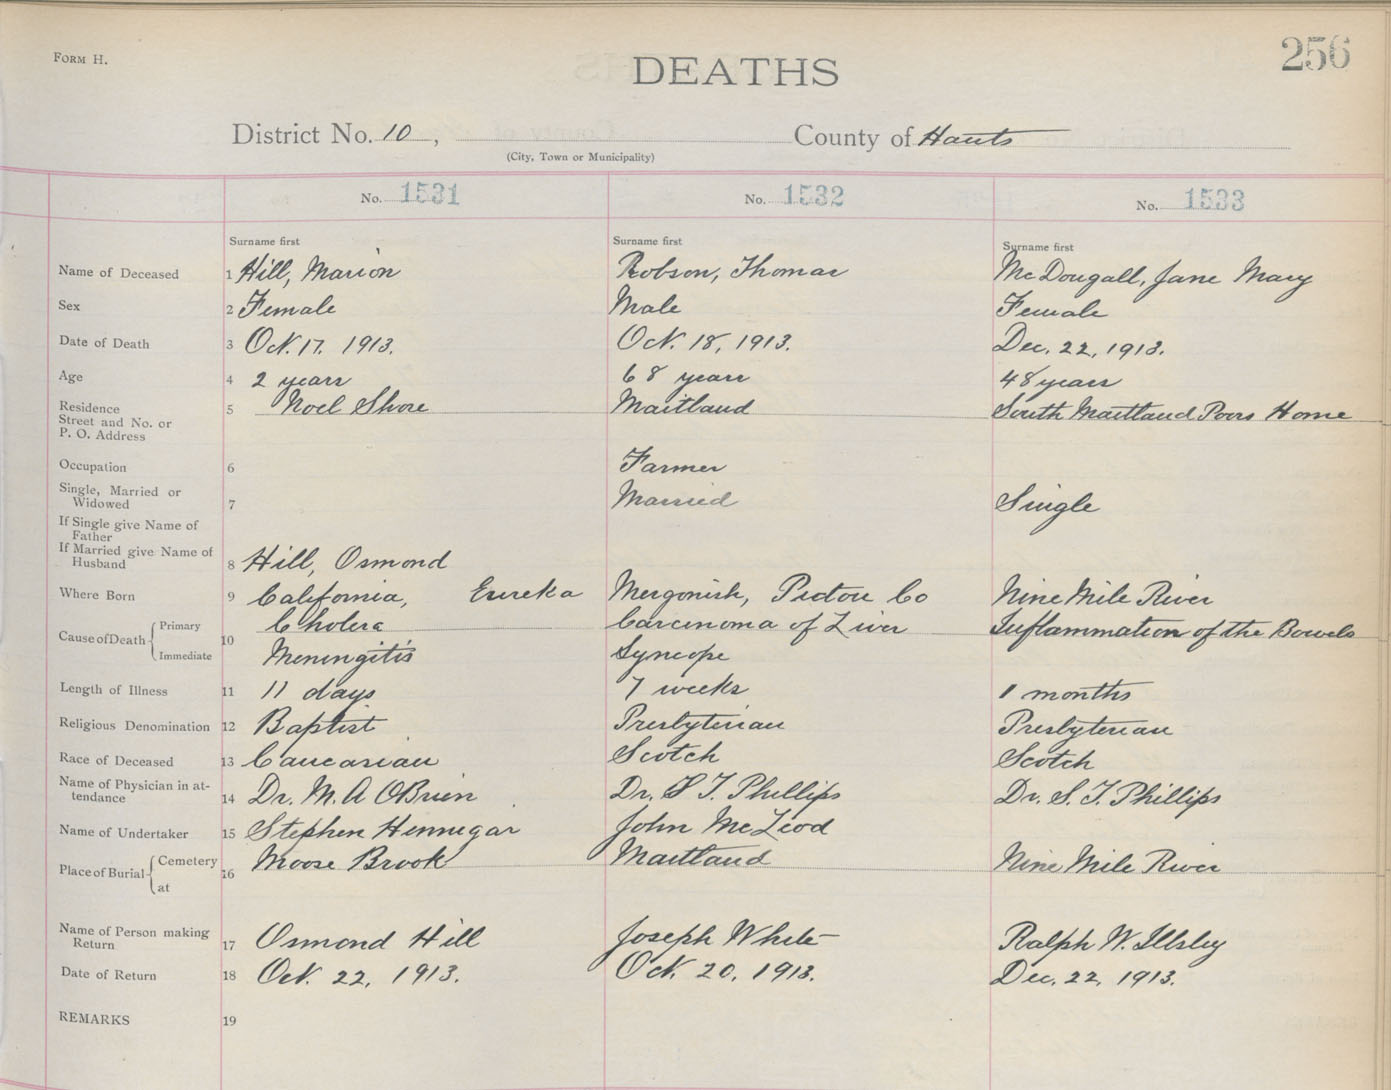 FORM H.
DEATHS
256
District No. 10, County of Hants
(City, Town or Municipality)
No. 1531 No. 1532 No. 1533
Surname first Surname first Surname first
Name of Deceased 1 Hill, Marion Robson, Thomas McDougall, Jane Mary
Sex 2 Female Male Female
Date of Death 3 Oct. 17. 1913. Oct. 18, 1913. Dec. 22, 1913.
Age 4 2 years 68 years 48 years
Residence
Street and No. or
P. O. Address
5 Noel Shore Maitland South Maitland Poors Home
Occupation 6 Farmer
Single, Married or
Widowed 7 Married Single
If Single give Name of
Father
If Married give Name of
Husband 8 Hill, Osmond
Where Born 9 California, Eureka Mergonish, Pictou Co Nine Mile River
Cause of Death Primary Cholera Carcinoma of Liver Inflammation of the Bowels
10
Immediate Meningitis Syncope
Length of Illness 11 11 days 7 weeks 1 months
Religious Denomination 12 Baptist Presbyterian Presbyterian
Race of Deceased 13 Caucasian Scotch Scotch
Name of Physician in at-
tendance 14 Dr. M. A OBrien Dr. S T. Phillips Dr. S. T. Phillips
Name of Undertaker 15 Stephen Hennegar John McLeod
Place of Burial Cemetery Moose Brook Maitland Nine Mile River
16
at
Name of Person making
Return 17 Osmond Hill Joseph White Ralph W. Illsley
Date of Return 18 Oct. 22, 1913. Oct. 20, 1913. Dec. 22, 1913.
REMARKS 19